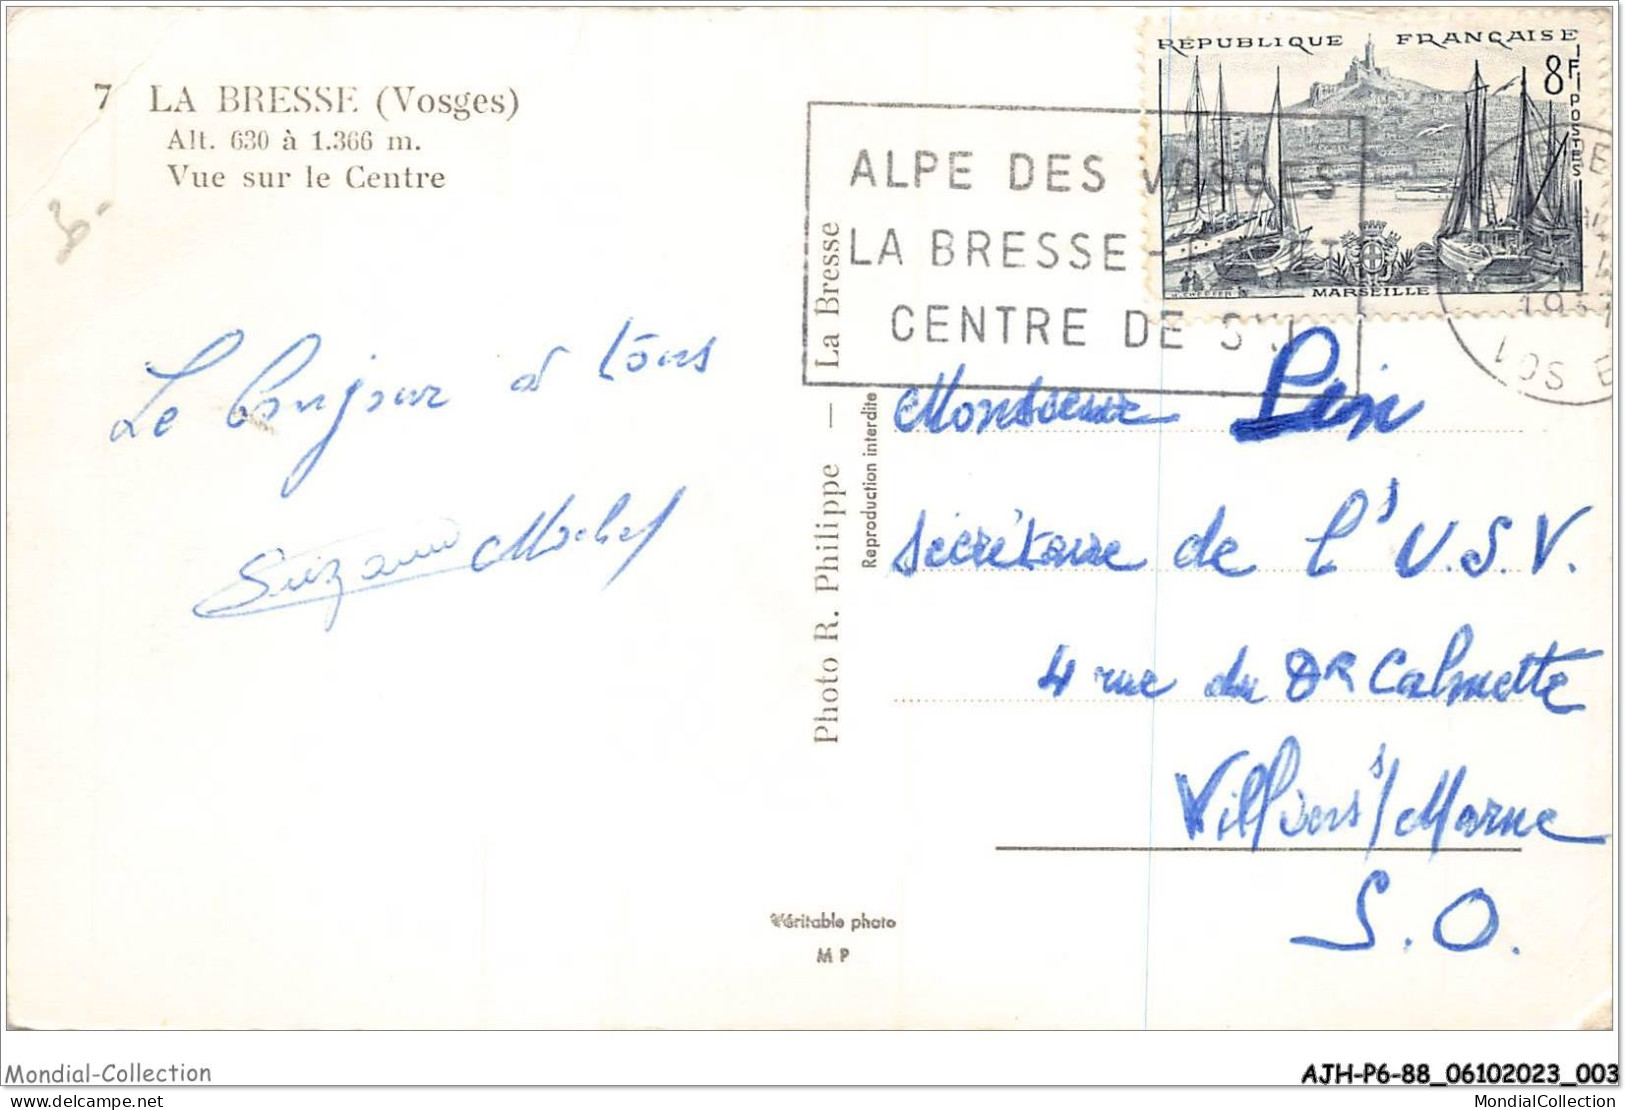 7 LA BRESSE (Vosges)
Alt. 630 à 1.366 m.
Vue sur le Centre
3-
Le bonjour à tous
Suzanne Michel
Photo R. Philippe — La Bresse
Reproduction interdite
Véritable photo
M P
ALPE DES VOSGES
LA BRESSE -
CENTRE DE
RÉPUBLIQUE FRANÇAISE
8F
POSTES
MARSEILLE
1957
VOSGES
Monsieur
Secrétaire de l'U.S.V.
4 rue du DR Calmette
Villiers s/Marne
S.O.
Mondial-Collection
AJH-P6-88_06102023_003
delcampe.net
MondialCollection